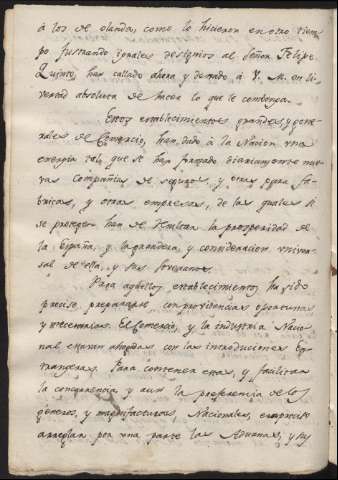 à los de olanda, como lo hicieron en otro tiem-
po frustrando iguales designios al Señor Felipe
Quinto, han callado ahora y dexado à V. M. en li-
vertad absoluta de hacer lo que le combenga.
Estos establecimientos grandes, y gene-
rales de Comercio, han dado à la Nacion una
energia tal, que se han fraguado diariamente nue-
vas Compañias de seguros, y otras para fa-
bricas, y otras empresas, de las quales si
se protegen han de resultar la prosperidad de
la España, y la grandeza, y consideracion univer-
sal de ella, y sus soveranos.
Para aquellos establecimientos, ha sido
preciso, prepararlos con providencias oportunas
y necesarias. El Comercio, y la industria Nacio-
nal estaban ahogados con las introducciones Es-
trangeras. Para contener estas, y facilitar
la concurrencia y aun la preferencia de los
generos, y manufacturas, Nacionales, era preciso
arreglar por una parte las Aduanas, y sus